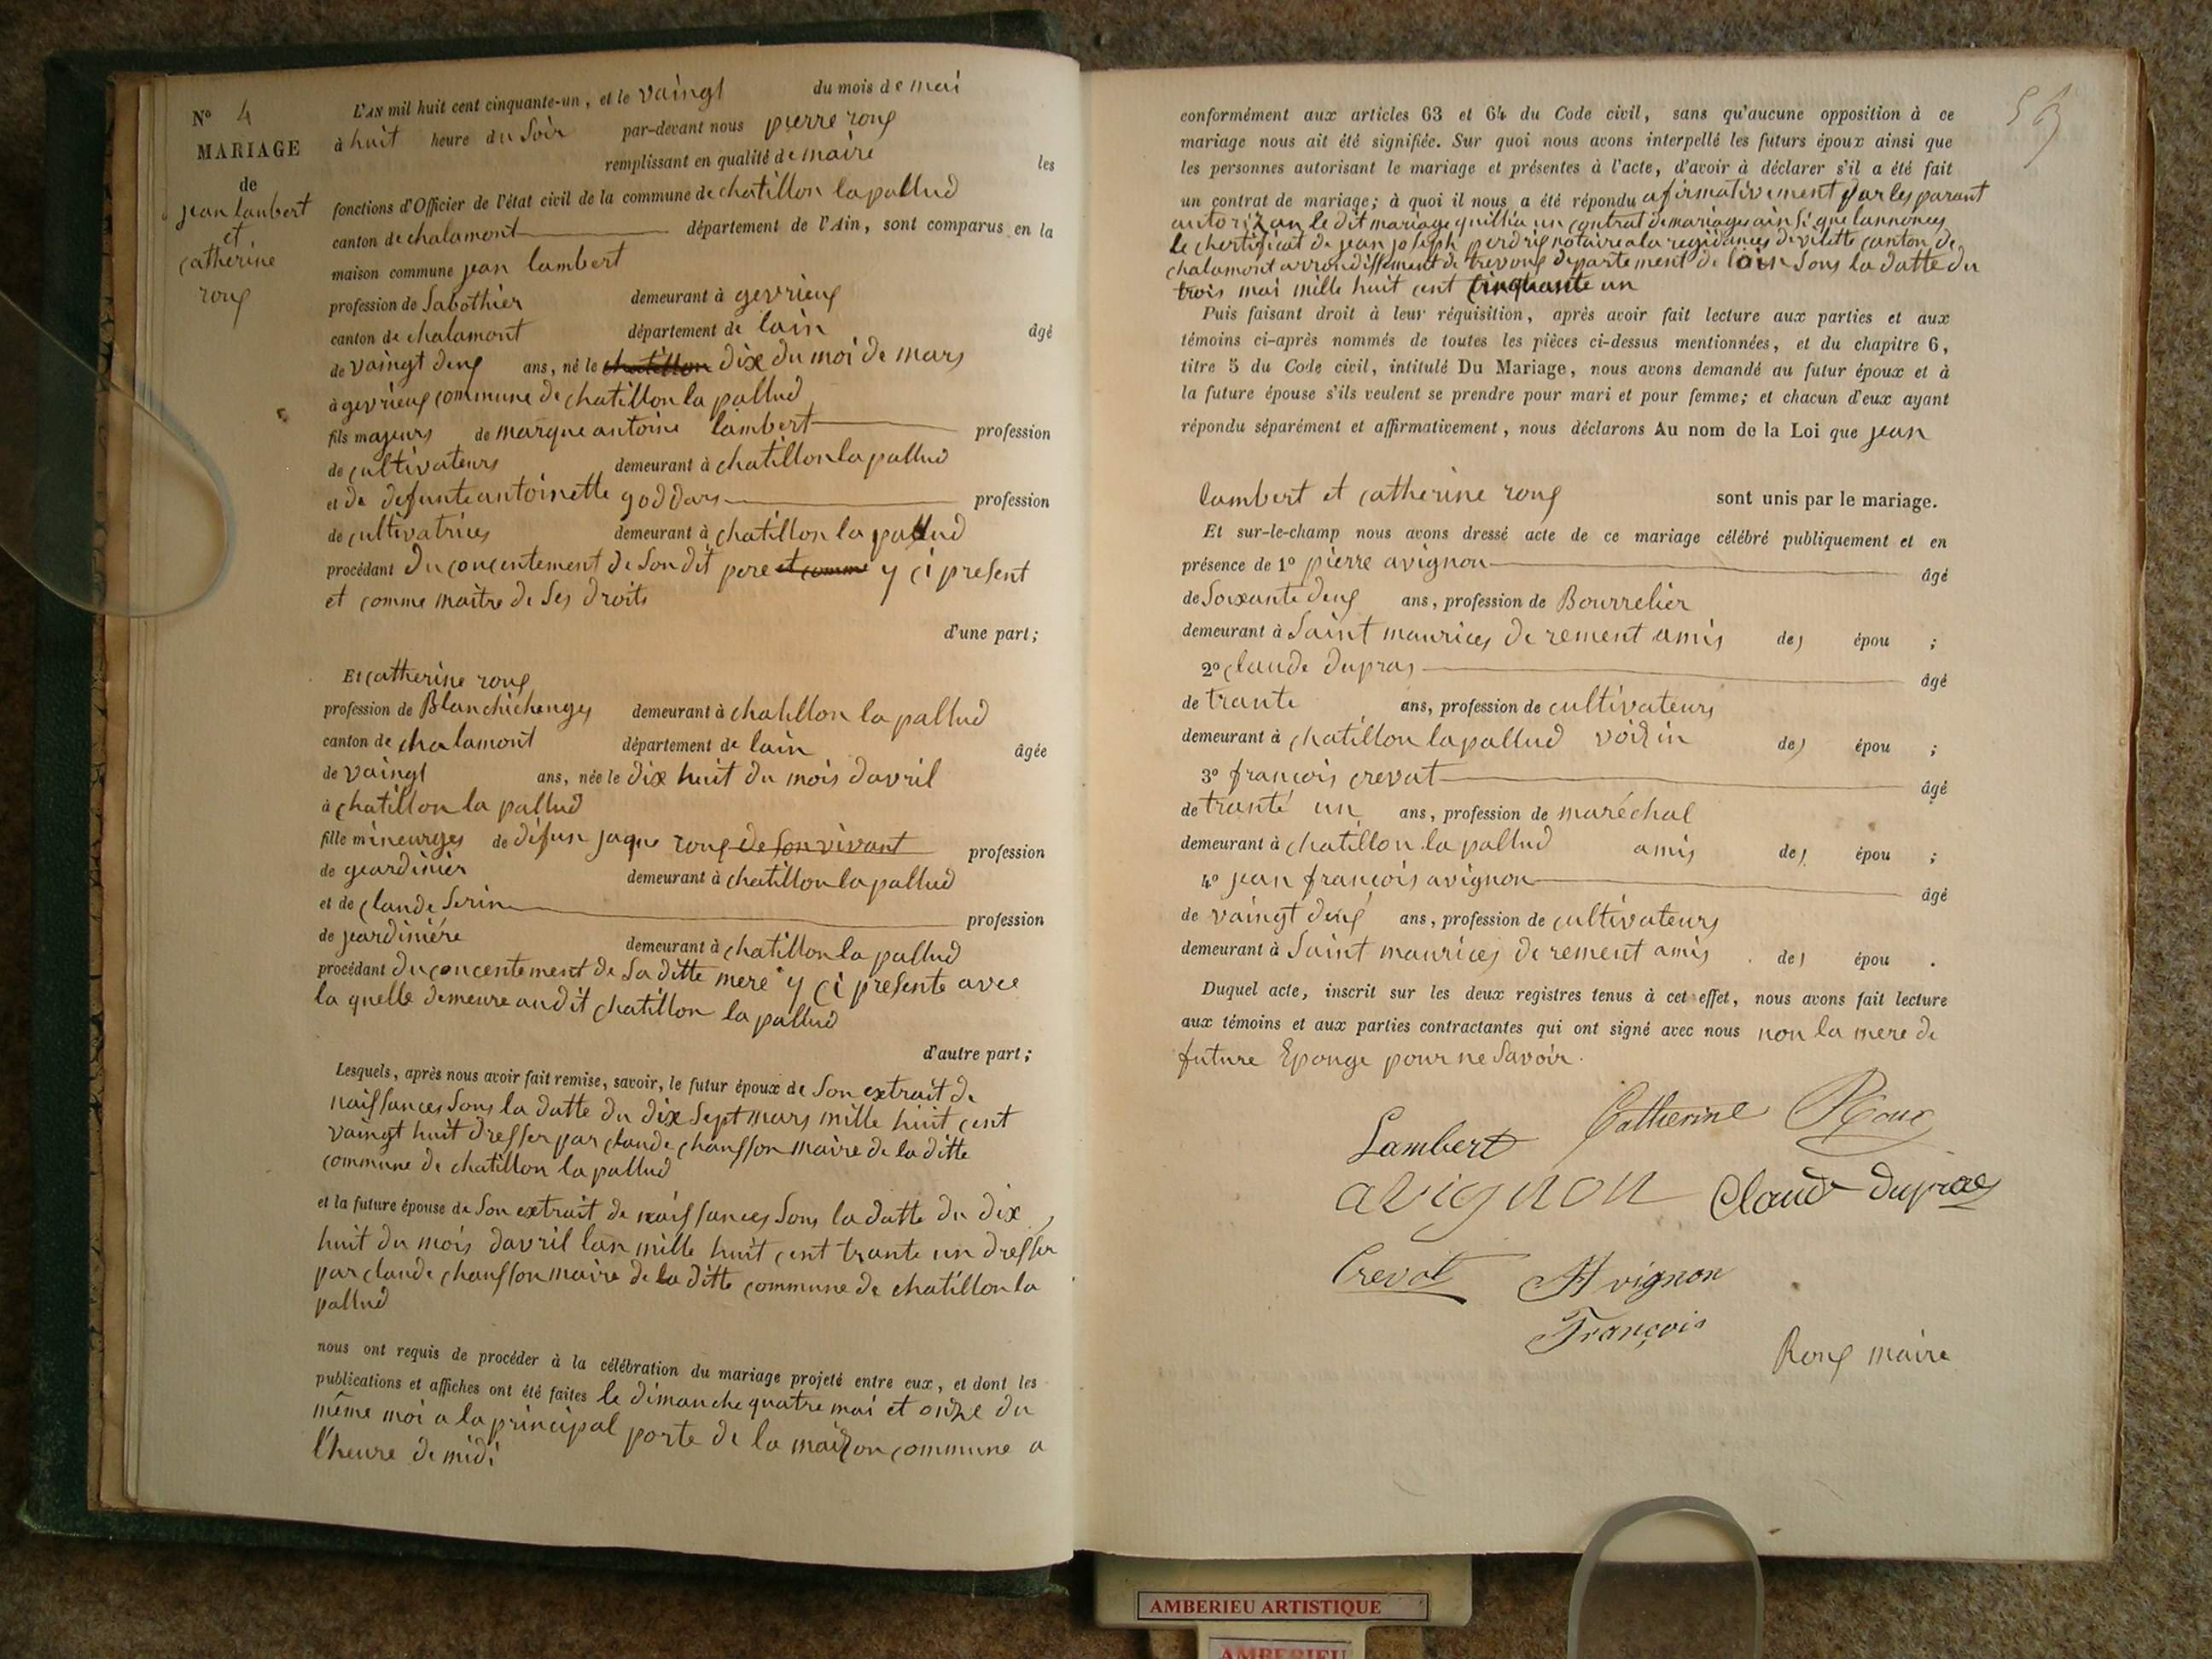 Nº 4
MARIAGE
de
jean lanbert
et
catherine
roux
L'AN mil huit cent cinquante-un, et le vaingt du mois de mai
à huit heure du soir par-devant nous pierre roux
remplissant en qualité de maire les
fonctions d'Officier de l'état civil de la commune de chatillon la pallud
canton de chalamont département de l'Ain, sont comparus en la
maison commune jean lambert
profession de Sabothier demeurant à gevrieux
canton de chalamont département de lain âgé
de vaingt deux ans, né le chatillon dix du moi de mars
à gevrieux commune de chatillon la pallud
fils majeurs de marque antoine lambert profession
de cultivateurs demeurant à chatillon la pallud
et de defunte antoinette goddars profession
de cultivatrices demeurant à chatillon la pallud
procédant du concentement de son dit pere et comme y ci present
et comme maitre de ses droits
d'une part;
Et catherine roux
profession de Blanchichenges demeurant à chatillon la pallud
canton de chalamont département de lain âgée
de vaingt ans, née le dix huit du mois davril
à chatillon la pallud
fille mineurges de défun jaque roux de son vivant profession
de geardinier demeurant à chatillon la pallud
et de claude Serin profession
de jeardiniére demeurant à chatillon la pallud
procédant du concentement de sa ditte mere y ci presente avec
la quelle demeure audit chatillon la pallud
d'autre part;
Lesquels, après nous avoir fait remise, savoir, le futur époux de son extrait de
naissances sous la datte du dix sept mars mille huit cent
vaingt huit dresser par claude chansson maire de la ditte
commune de chatillon la pallud
et la future épouse de son extrait de naissances sous la datte du dix
huit du mois davril lan mille huit cent trante un dresser
par claude chansson maire de la ditte commune de chatillon la
pallud
nous ont requis de procéder à la célébration du mariage projeté entre eux, et dont les
publications et affiches ont été faites le dimanche quatre mai et onze du
même moi a la principal porte de la maizon commune a
l'heure de midi
conformément aux articles 63 et 64 du Code civil, sans qu'aucune opposition à ce
mariage nous ait été signifiée. Sur quoi nous avons interpellé les futurs époux ainsi que
les personnes autorisant le mariage et présentes à l'acte, d'avoir à déclarer s'il a été fait
un contrat de mariage; à quoi il nous a été répondu afirmativement par les parant
autorizan le dit mariage quillia un contrat de mariages ainsi que lannonces
le chertificat de jean joseph perdrix notaire a la rezidances de vilette canton de
chalamont arrondissement de trevoux departement de lain sous la datte du
trois mai mille huit cent cinquante un
Puis faisant droit à leur réquisition, après avoir fait lecture aux parties et aux
témoins ci-après nommés de toutes les pièces ci-dessus mentionnées, et du chapitre 6,
titre 5 du Code civil, intitulé Du Mariage, nous avons demandé au futur époux et à
la future épouse s'ils veulent se prendre pour mari et pour femme; et chacun d'eux ayant
répondu séparément et affirmativement, nous déclarons Au nom de la Loi que jean
lambert et catherine roux sont unis par le mariage.
Et sur-le-champ nous avons dressé acte de ce mariage célébré publiquement et en
présence de 1º pierre avignon âgé
de Soixante deux ans, profession de Bourrelier
demeurant à Saint maurices de rement amis des épou ;
2º claude dupras âgé
de trante ans, profession de cultivateurs
demeurant à chatillon la pallud voizin des épou ;
3º françois crevat âgé
de tranté un ans, profession de maréchal
demeurant à chatillon la pallud amis des épou ;
4º jean françois avignon âgé
de vaingt deux ans, profession de cultivateurs
demeurant à Saint maurices de rement amis des épou .
Duquel acte, inscrit sur les deux registres tenus à cet effet, nous avons fait lecture
aux témoins et aux parties contractantes qui ont signé avec nous non la mere de
future Epouge pour ne Savoir.
Lambert Catherine Roux
avignon Claude dupras
Crevat Avignon
François
Roux maire
AMBERIEU ARTISTIQUE
AMBERIEU